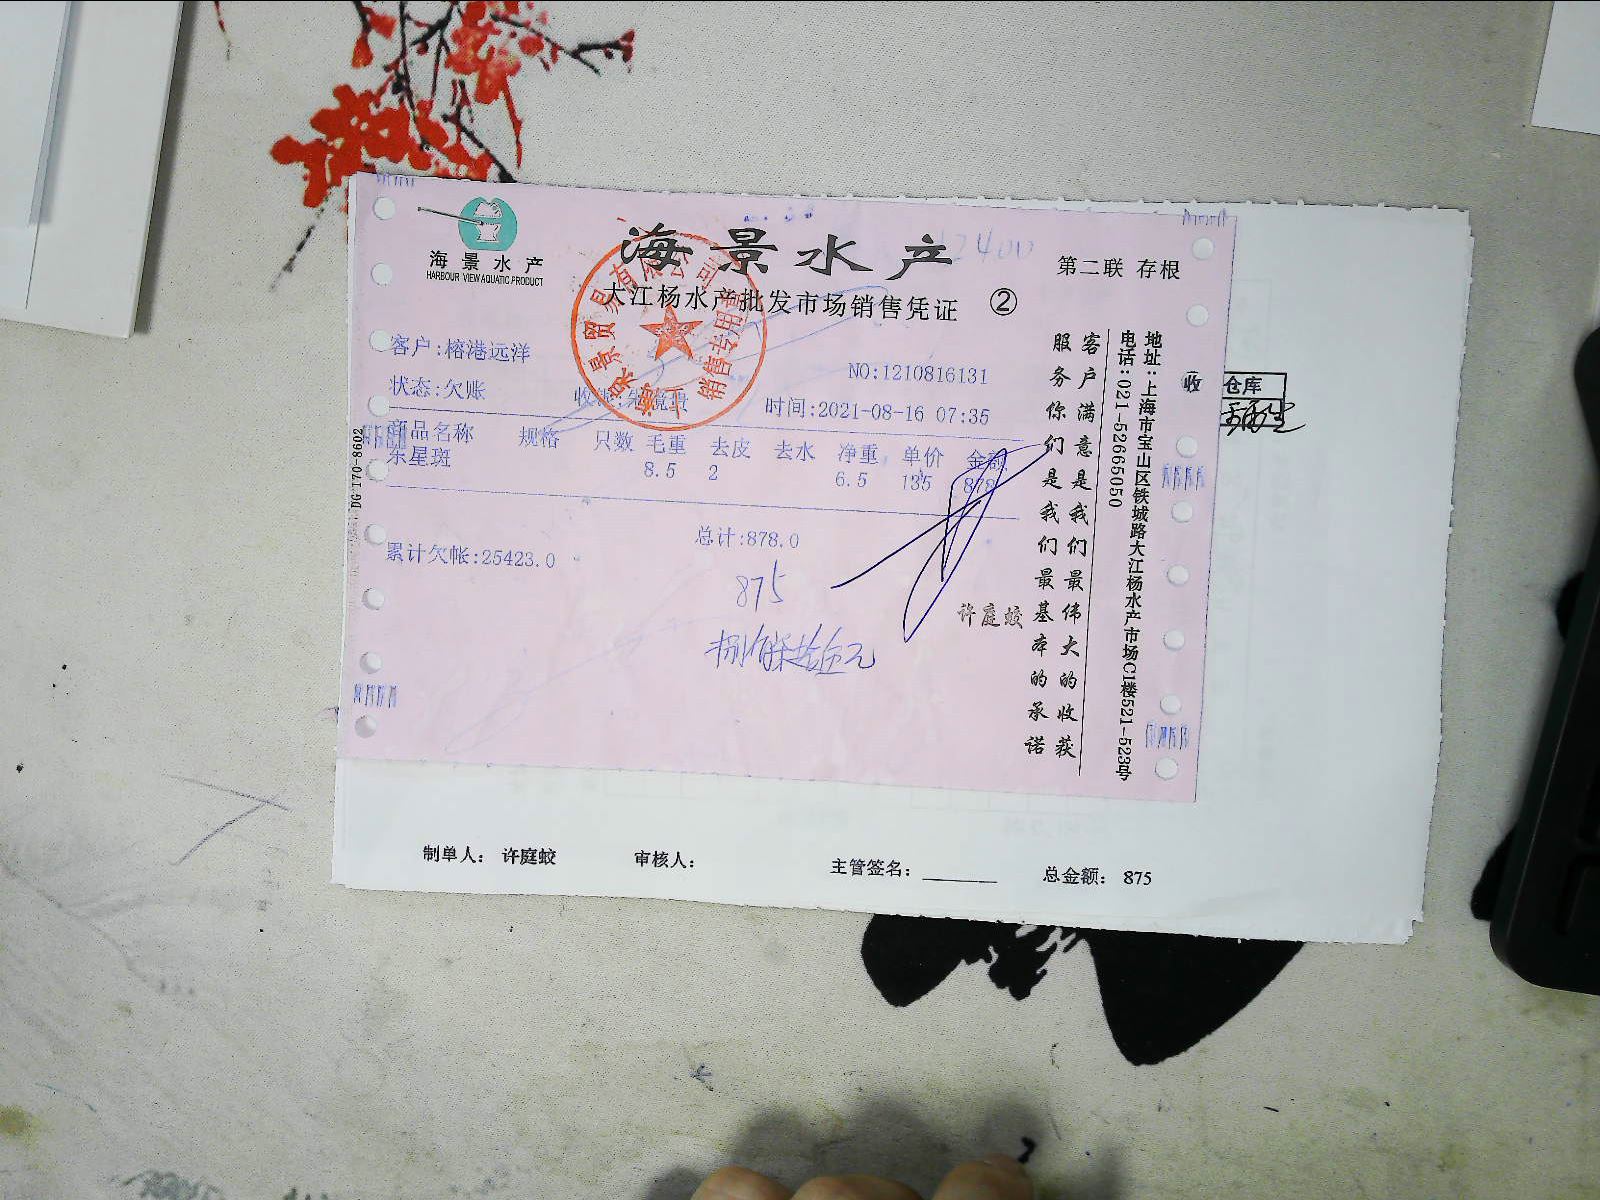 海景水产
HARBOUR VIEW AQUATIC PRODUCT
海景水产
12400
第二联 存根
大江杨水产批发市场销售凭证 ②
景贸易有限公司
销售专用章
客户:榕港远洋
NO:1210816131
状态:欠账
时间:2021-08-16 07:35
商品名称 规格 只数 毛重 去皮 去水 净重 单价 金额
东星斑 8.5 2 6.5 135 878
总计:878.0
累计欠帐:25423.0
875
捌佰柒拾伍元
许庭蛟
客户满意是我们最伟大的收获
服务你们是我们最基本的承诺
地址:上海市宝山区铁城路大江杨水产市场C1楼521-523号
电话:021-52665050
DG 170-8602
收
仓库
制单人: 许庭蛟 审核人: 主管签名: 总金额: 875